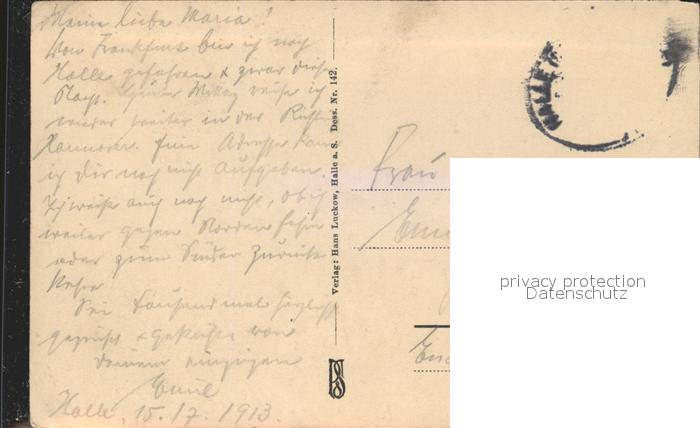 Meine liebe Maria!
Von Frankfurt bin ich nach
Halle gefahren & zwar diese
Nacht. Mittag reise ich
wieder weiter in der Richt.
Hannover. Eine Adresse kann
ich dir noch nicht aufgeben.
Ich weiß auch noch nicht, ob ich
weiter gegen Norden fahre
oder zum Süden zurück
kehre!
Sei tausend mal herzlich
gegrüßt & geküßt von
deinem einzigen
Emil
Halle, 15.17.1913.
Verlag: Hans Luckow, Halle a. S. Dess. Nr. 142.
HALLE
Frau
privacy protection
Datenschutz